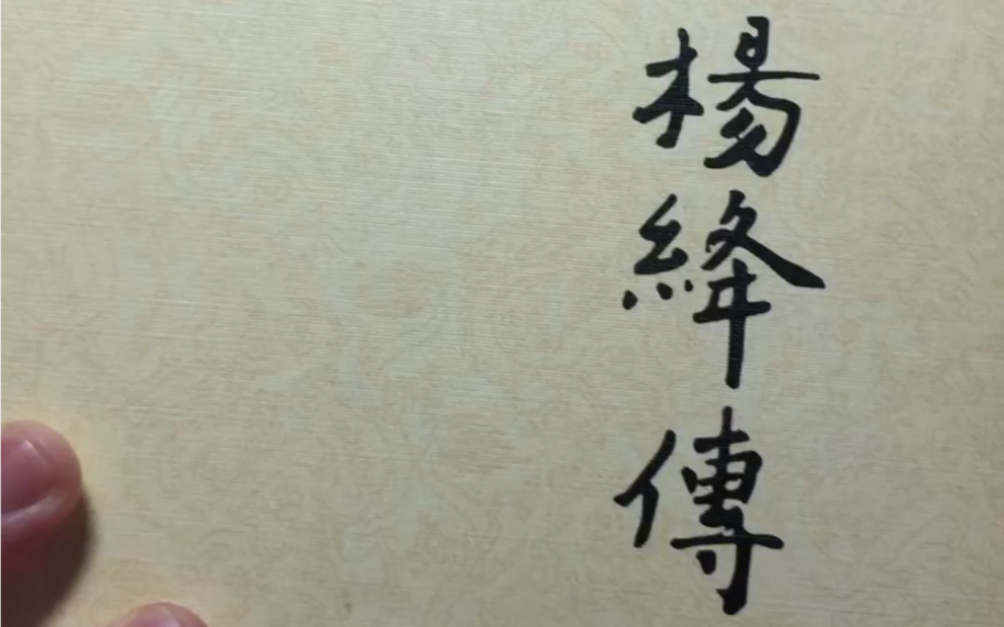 楊絳傳